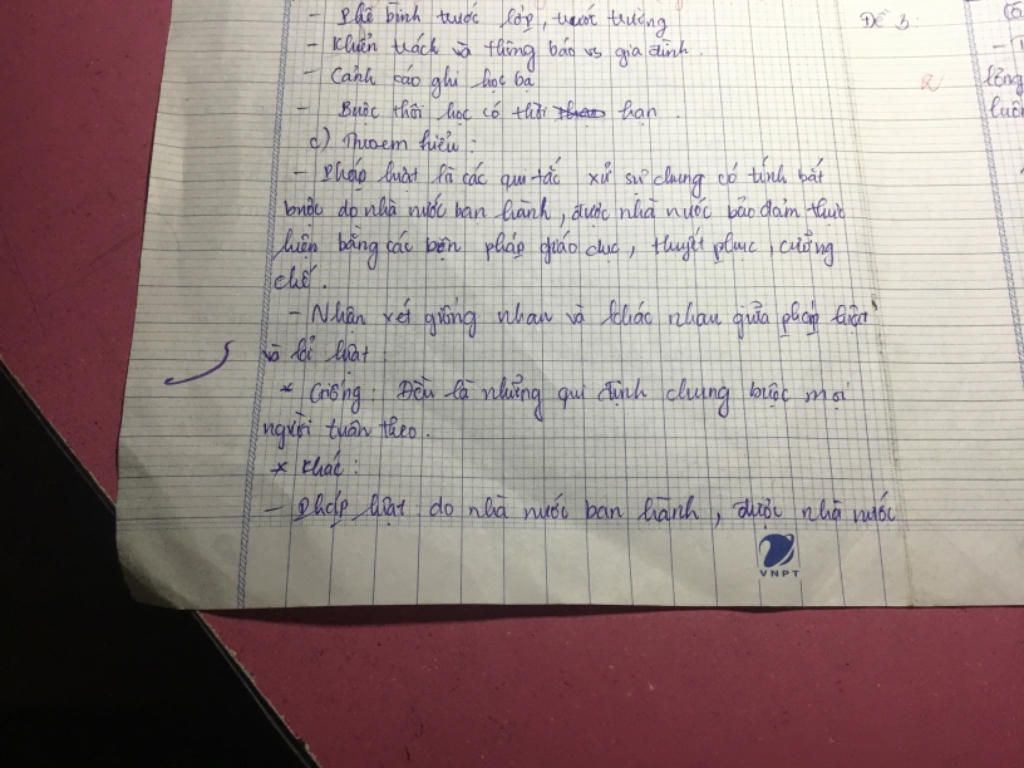 - Phê bình trước lớp, trước trường
- Khiển trách và thông báo vs gia đình.
- Cảnh cáo ghi học bạ
- Buộc thôi học có thời hạn.
c) Theo em hiểu:
- Pháp luật là các qui tắc xử sự chung có tính bắt
buộc do nhà nước ban hành, được nhà nước bảo đảm thực
hiện bằng các biện pháp giáo dục, thuyết phục, cưỡng
chế.
- Nhận xét giống nhau và khác nhau giữa pháp luật
và kỉ luật
* Giống: Đều là những qui định chung buộc mọi
người tuân theo.
* Khác:
- Pháp luật do nhà nước ban hành, được nhà nước
VNPT
Đề 3:
a